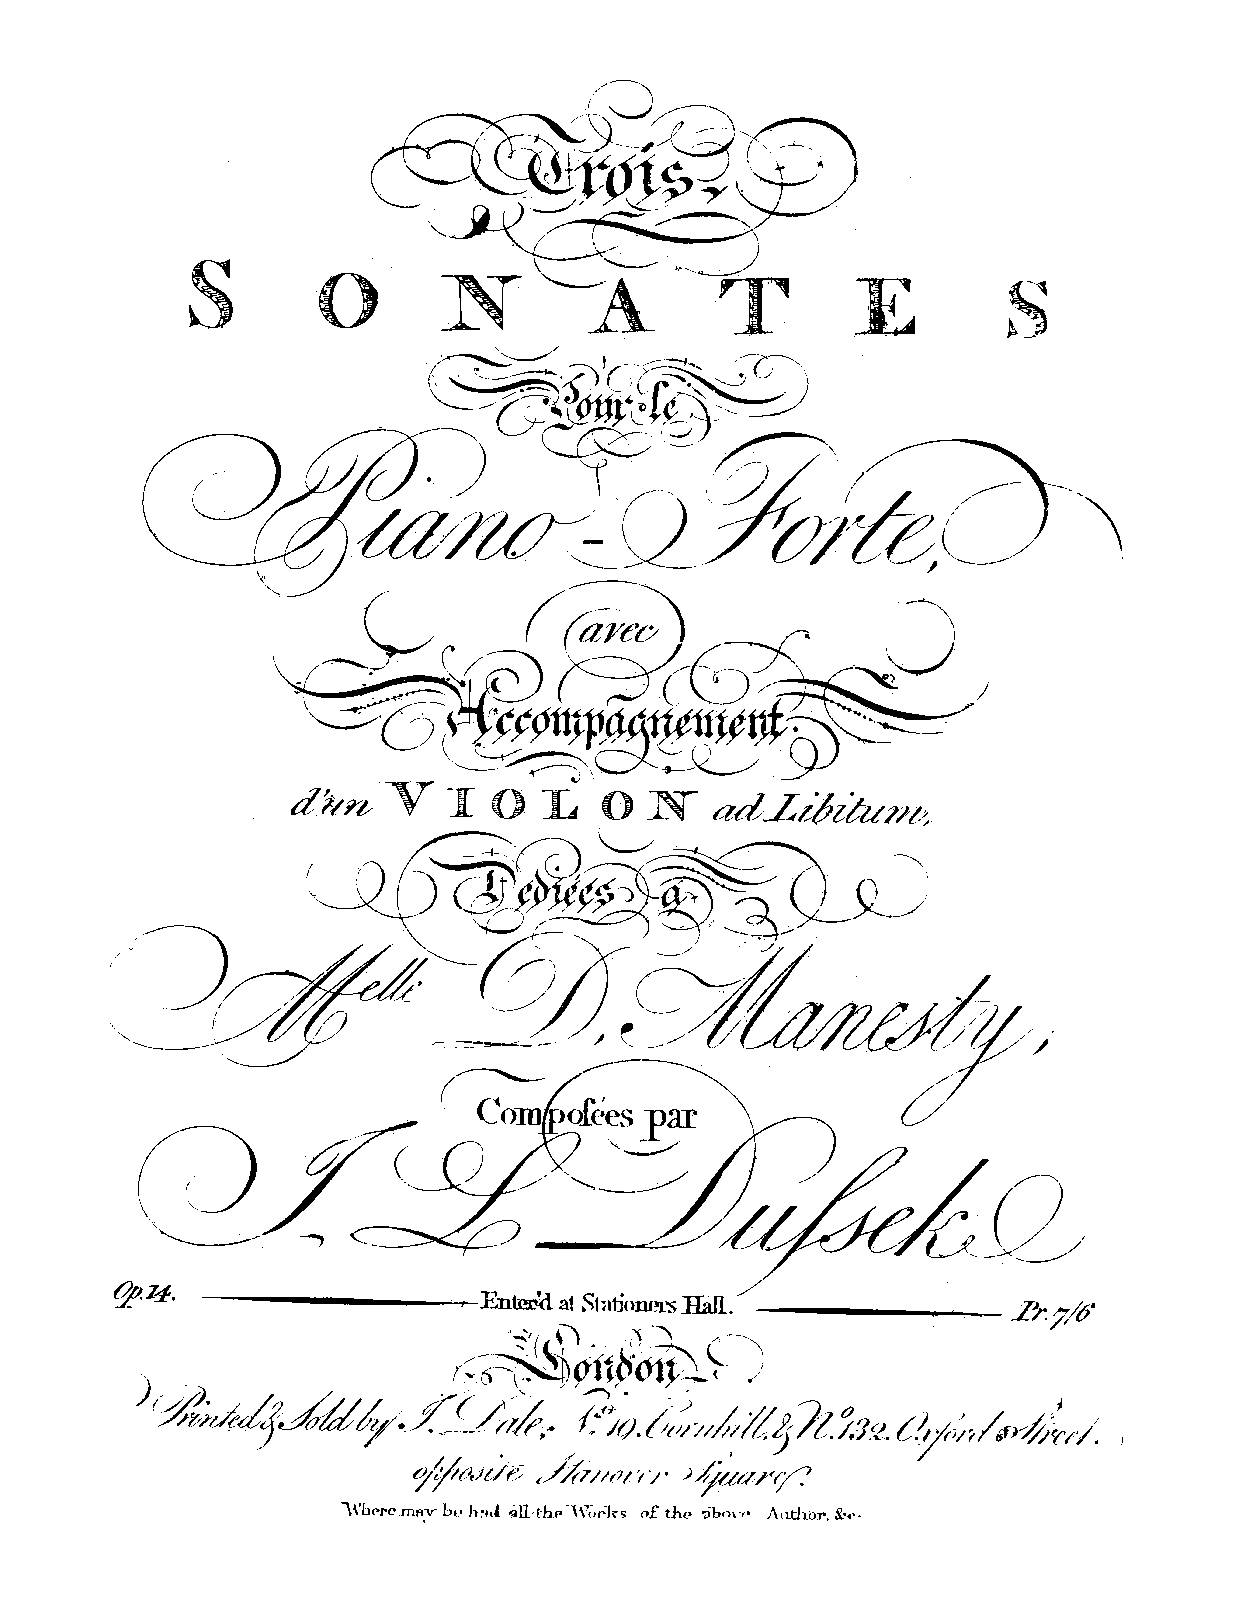 Trois
SONATES
Pour le
Piano-Forte,
avec
Accompagnement
d'un VIOLON ad Libitum,
Dediées à
Melle D. Manesty,
Composées par
J. L. Dussek
Op. 14. Enter'd at Stationers Hall. Pr. 7/6
London
Printed & Sold by J. Dale, No. 19. Cornhill. & No. 132. Oxford Street.
opposite Hanover Square.
Where may be had all the Works of the above Author, &c.